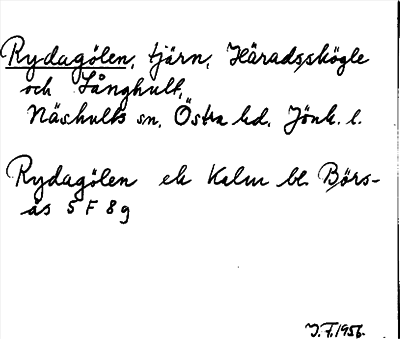 Rydagölen, tjärn, Häradsskögle
och Långhult,
Näshults sn, Östra hd. Jönk. l.
Rydagölen ek Kalm bl. Börs-
ås 5 F 8 g
J.F. 1956.